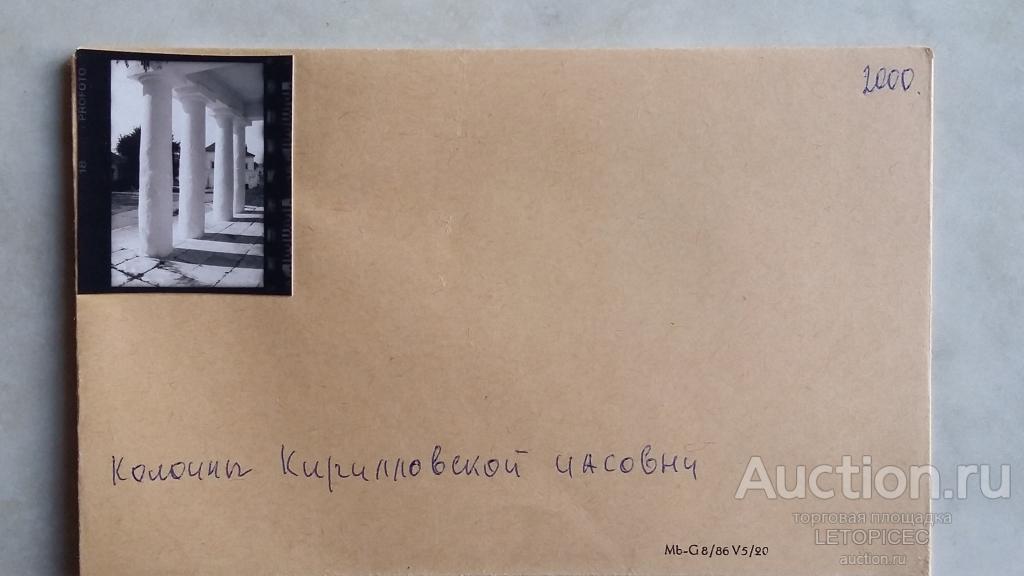 18 PROFOTO
2000.
Колонны Кирилловской часовни
Mb-G 8/86 V5/20
Auction.ru
торговая площадка
LETOPICEC
auction.ru